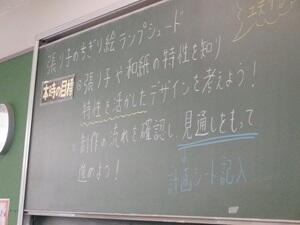 張り子のちぎり絵ランプシェード
本時の目標
◎張り子や和紙の特性を知り
特性を活かしたデザインを考えよう!
◎制作の流れを確認し、見通しをもって
進めよう!
計画シート記入